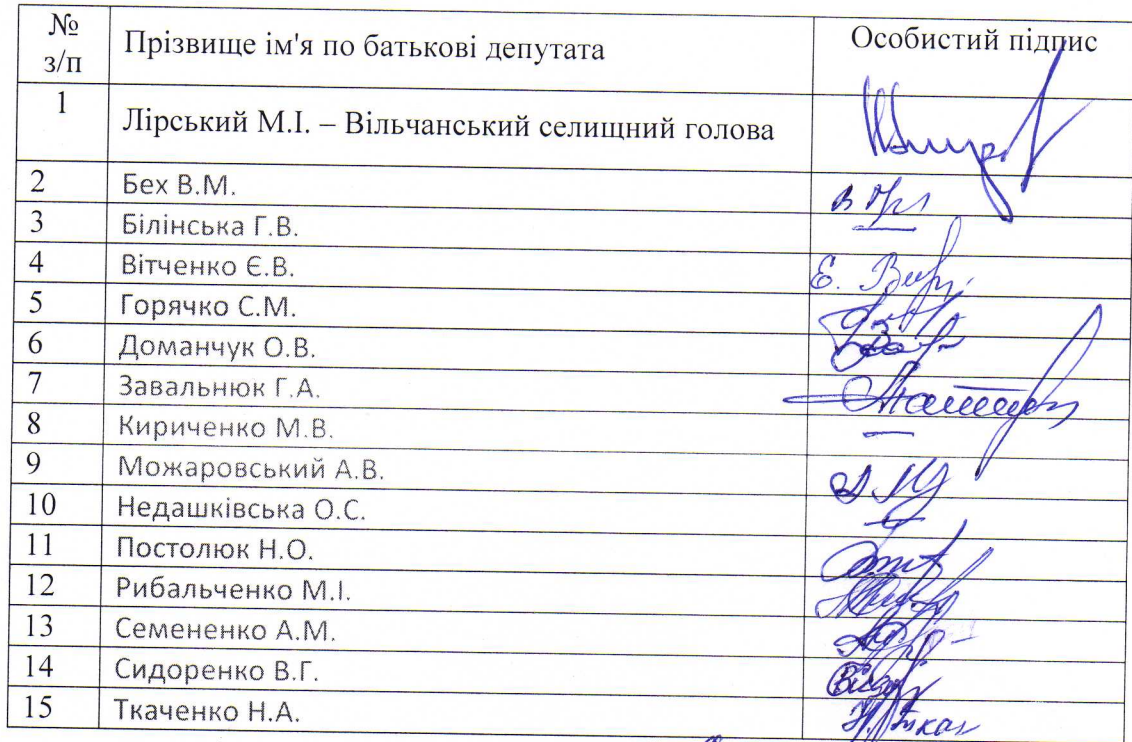 № з/п Прізвище ім'я по батькові депутата Особистий підпис
1 Лірський М.І. – Вільчанський селищний голова
2 Бех В.М.
3 Білінська Г.В. —
4 Вітченко Є.В.
5 Горячко С.М.
6 Доманчук О.В.
7 Завальнюк Г.А.
8 Кириченко М.В. —
9 Можаровський А.В.
10 Недашківська О.С.
11 Постолюк Н.О.
12 Рибальченко М.І.
13 Семененко А.М.
14 Сидоренко В.Г.
15 Ткаченко Н.А.